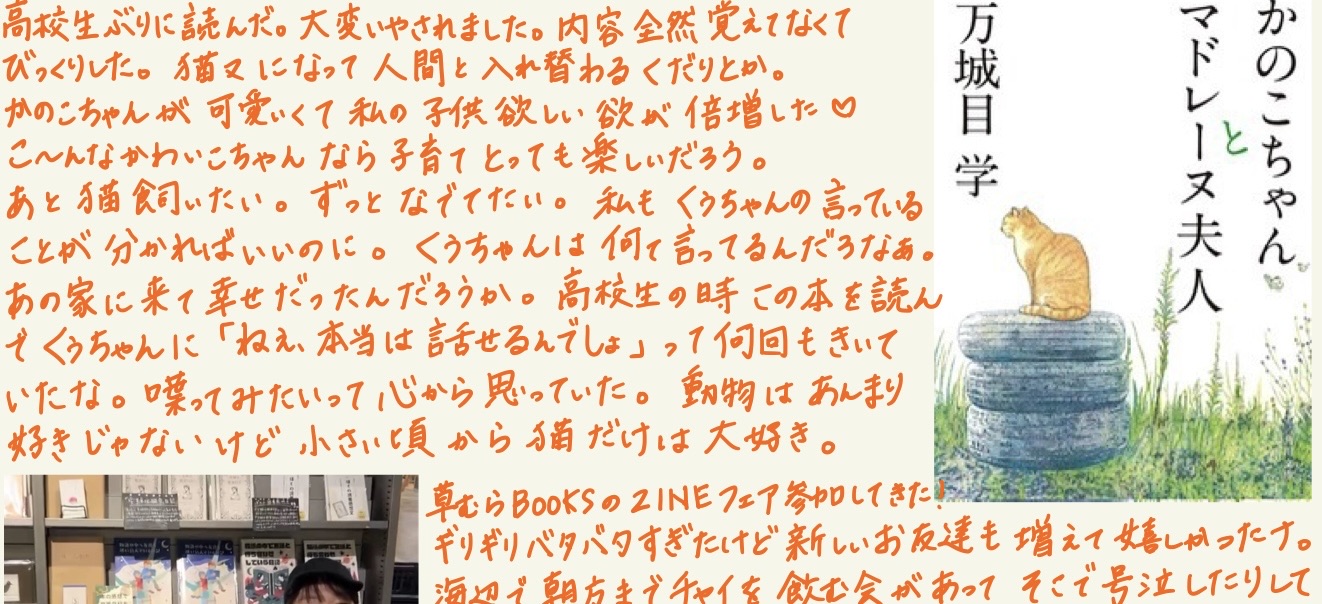 高校生ぶりに読んだ。大変いやされました。内容全然覚えてなくて
びっくりした。猫又になって人間と入れ替わるくだりとか。
かのこちゃんが可愛いくて私の子供欲しい欲が倍増した♡
こ〜んなかわいこちゃんなら子育てとっても楽しいだろう。
あと猫飼いたい。ずっとなでてたい。私もくうちゃんの言っている
ことが分かればいいのに。くうちゃんは何て言ってるんだろなぁ。
あの家に来て幸せだったんだろうか。高校生の時この本を読ん
でくうちゃんに「ねぇ、本当は話せるんでしょ」って何回もきいて
いたな。喋ってみたいって心から思っていた。動物はあんまり
好きじゃないけど小さい頃から猫だけは大好き。
かのこちゃん
と
マドレーヌ夫人
万城目学
草むらBOOKSのZINEフェア参加してきた!
ギリギリバタバタすぎたけど新しいお友達も増えて嬉しかったナ。
海辺で朝方までチャイを飲む会があってそこで号泣したりして